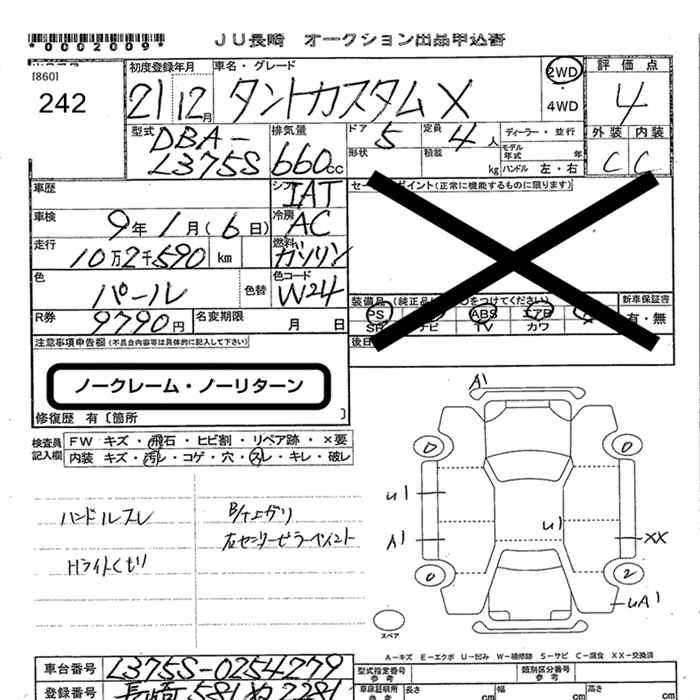 *0002009*
JU長崎 オークション出品申込書
[860]
242
初度登録年月
21 12月
車名・グレード
タントカスタムX
2WD
・
4WD
評価点
4
外装 内装
C C
型式
DBA-
L375S
排気量
660cc
ドア 5
定員 4人
形状
積載 kg
ディーラー・並行
モデル年式 年
ハンドル 左・右
車歴
シフト IAT
車検
9年1月(6日)
冷房 AC
走行
10万2千590 km
燃料 ガソリン
色
パール
色替
色コード W24
R券 9790円
名変期限 月 日
セールスポイント(正常に機能するものに限ります)
装備品 (純正品に○をつけてください)
新車保証書
有・無
PS
ABS エアB
SR ナビ TV カワ
後日
注意事項申告欄(不具合内容等は具体的に記入して下さい)
ノークレーム・ノーリターン
修復歴 有〔箇所 〕
検査員
記入欄
FW キズ・飛石・ヒビ割・リペア跡・×要
内装 キズ・汚レ・コゲ・穴・スレ・キレ・破レ
ハンドルスレ
Hライトくもり
B/下エグリ
左センターピラーペイント
A1
U1
U1
A1
XX
2
UA1
スペア
A-キズ E-エクボ U-凹み W-補修跡 S-サビ C-腐食 XX-交換済
車台番号 L375S-0254779
登録番号 長崎581ぬ2281
型式指定番号
参考
類別区分番号
参考
車庫証明用
参考
長さ cm
幅 cm
高さ cm